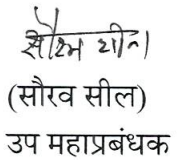 सौरभ सील
(सौरव सील)
उप महाप्रबंधक